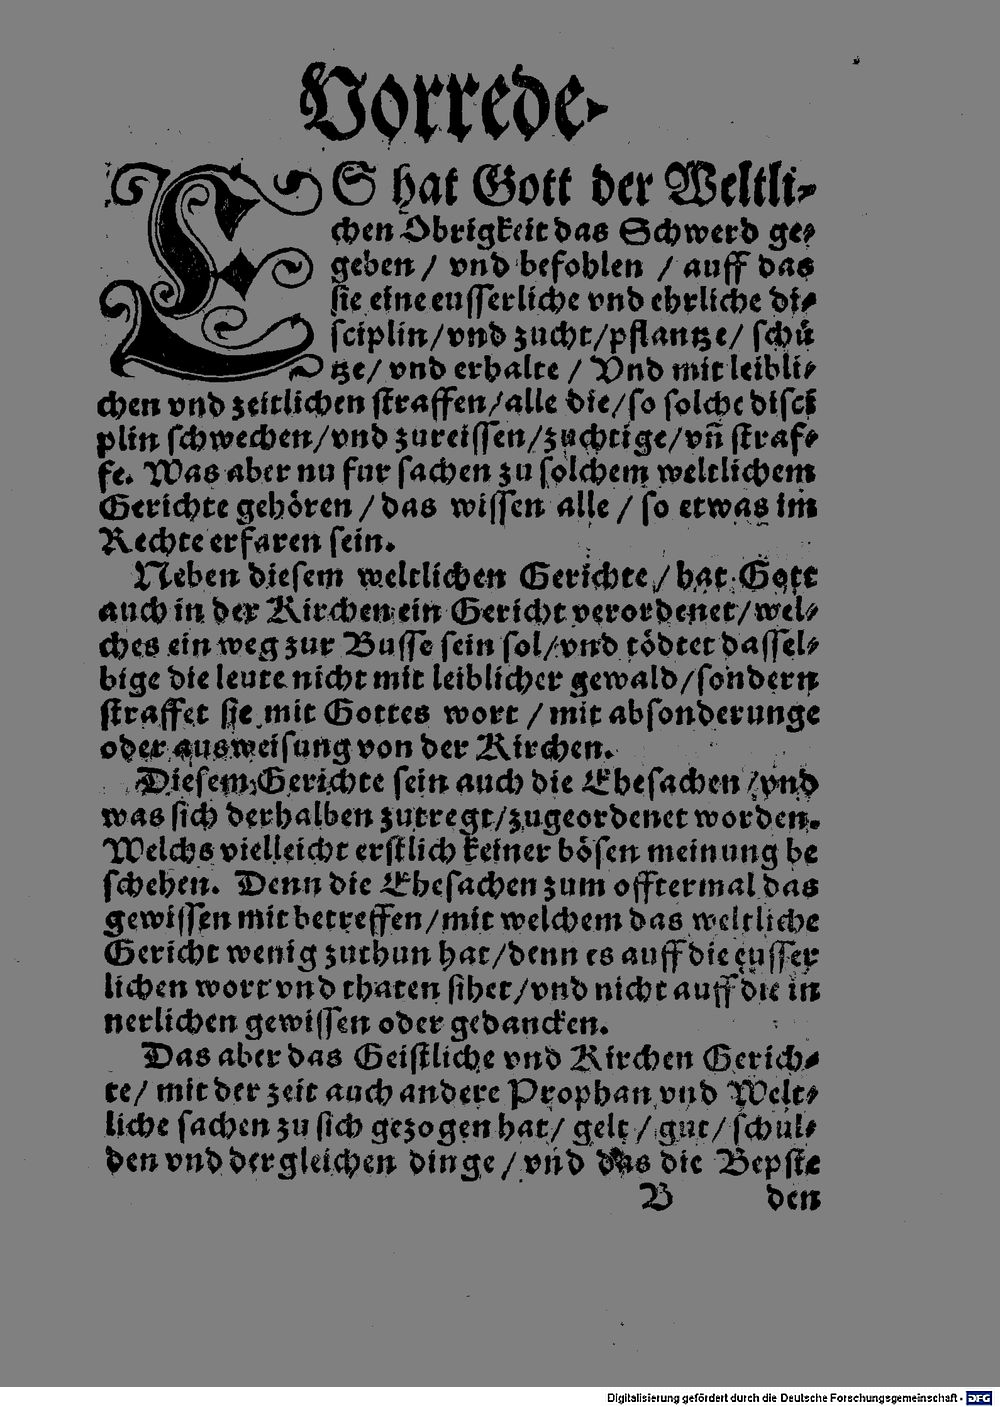 Vorrede.
ES hat Gott der Weltli⸗
chen Obrigkeit das Schwerd ge⸗
geben / vnd befohlen / auff das
sie eine eusserliche vnd ehrliche di⸗
sciplin/vnd zucht/pflantze/ schuͤ
tze/ vnd erhalte / Vnd mit leibli⸗
chen vnd zeitlichen straffen/alle die/so solche disci
plin schwechen/vnd zureissen/zuchtige/vñ straf⸗
fe. Was aber nu fur sachen zu solchem weltlichem
Gerichte gehören / das wissen alle / so etwas im
Rechte erfaren sein.
Neben diesem weltlichen Gerichte / hat Gott
auch in der Kirchen ein Gericht verordenet/wel⸗
ches ein weg zur Busse sein sol/vnd tödtet dassel⸗
bige die leute nicht mit leiblicher gewald/sondern
straffet sie mit Gottes wort / mit absonderunge
oder ausweisung von der Kirchen.
Diesem Gerichte sein auch die Ehesachen /vnd
was sich derhalben zutregt/zugeordenet worden.
Welchs vielleicht erstlich keiner bösen meinung be
schehen. Denn die Ehesachen zum offtermal das
gewissen mit betreffen/mit welchem das weltliche
Gericht wenig zuthun hat/denn es auff die eusser
lichen wort vnd thaten sihet/vnd nicht auff die in
nerlichen gewissen oder gedancken.
Das aber das Geistliche vnd Kirchen Gerich⸗
te/ mit der zeit auch andere Prophan vnd Welt⸗
liche sachen zu sich gezogen hat/ gelt / gut / schul⸗
den vnd dergleichen dinge / vnd das die Bepste
B den
Digitalisierung gefördert durch die Deutsche Forschungsgemeinschaft - DFG